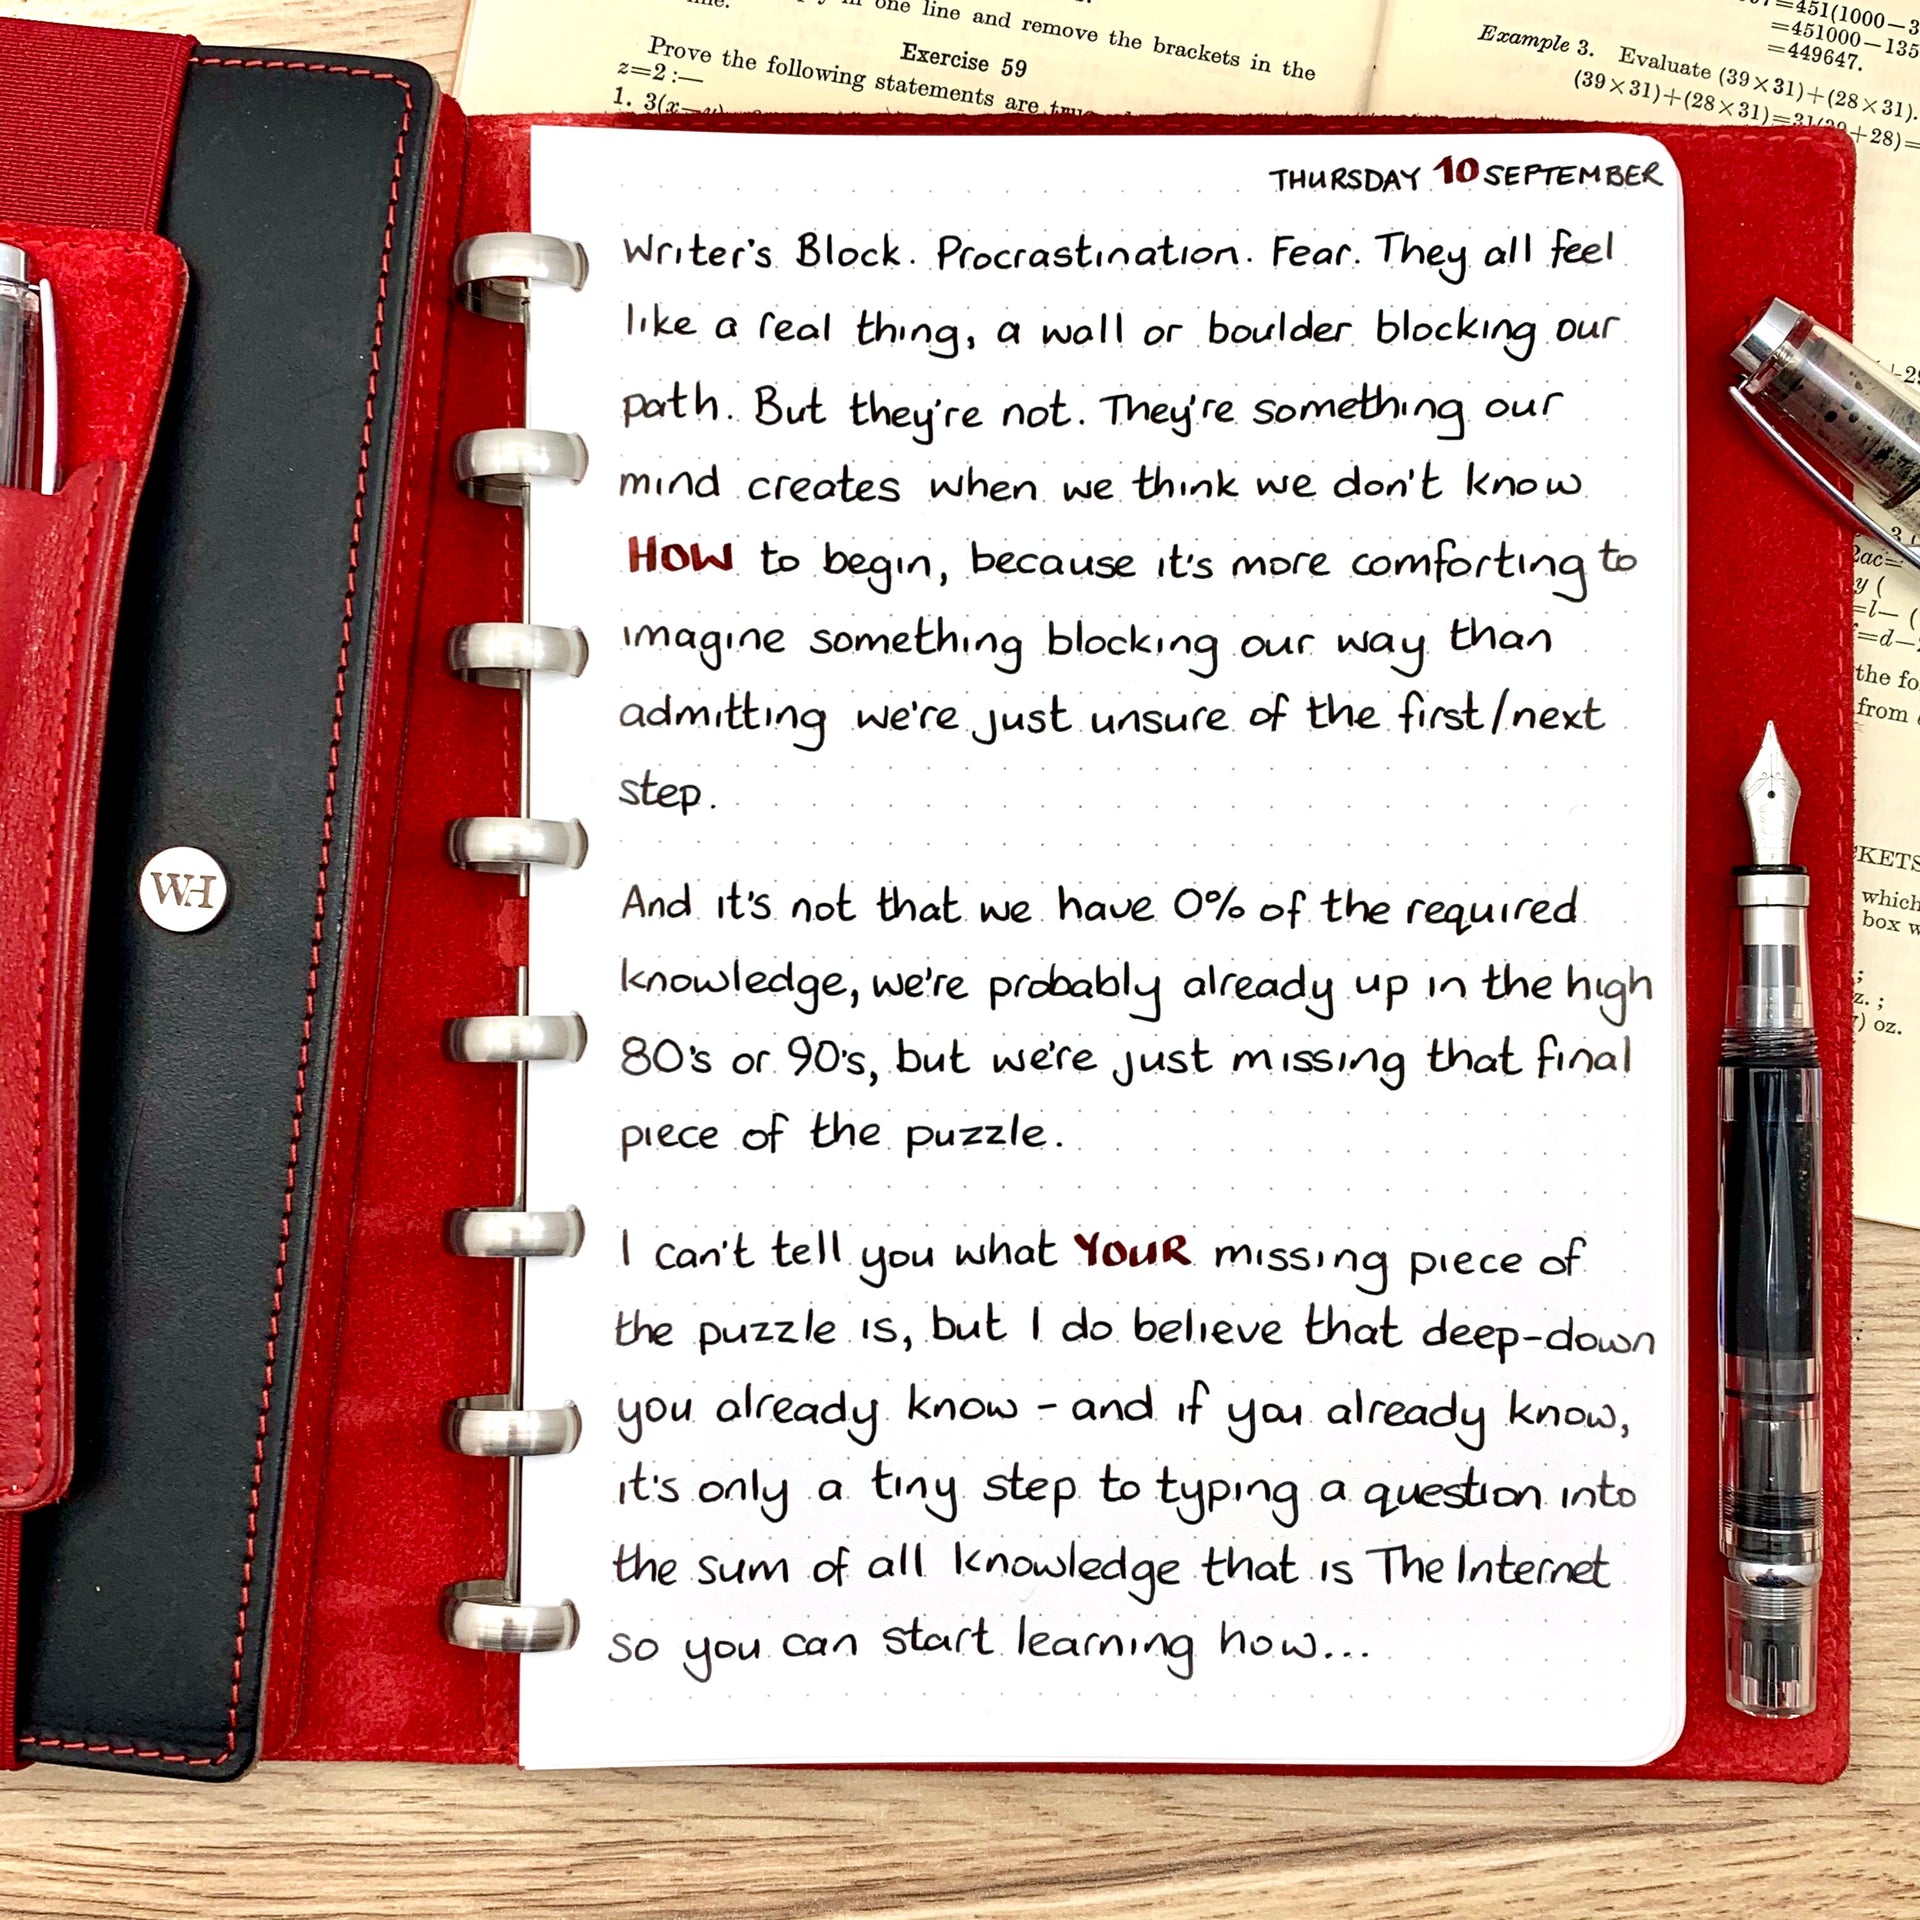 one line and remove the brackets in the
Exercise 59
Prove the following statements are true
z=2:—
1. 3(x—y)
=451(1000—3
=451000—135
=449647.
Example 3. Evaluate (39×31)+(28×31).
(39×31)+(28×31)=31(39+28)=
THURSDAY 10 SEPTEMBER
Writer's Block. Procrastination. Fear. They all feel
like a real thing, a wall or boulder blocking our
path. But they're not. They're something our
mind creates when we think we don't know
HOW to begin, because it's more comforting to
imagine something blocking our way than
admitting we're just unsure of the first/next
step.
And it's not that we have 0% of the required
knowledge, we're probably already up in the high
80's or 90's, but we're just missing that final
piece of the puzzle.
I can't tell you what YOUR missing piece of
the puzzle is, but I do believe that deep-down
you already know - and if you already know,
it's only a tiny step to typing a question into
the sum of all knowledge that is The Internet
so you can start learning how...
WH
2ac=
y (
=l— (
=d—
the fo
from
KETS
which
box w
z. ;
7) oz.